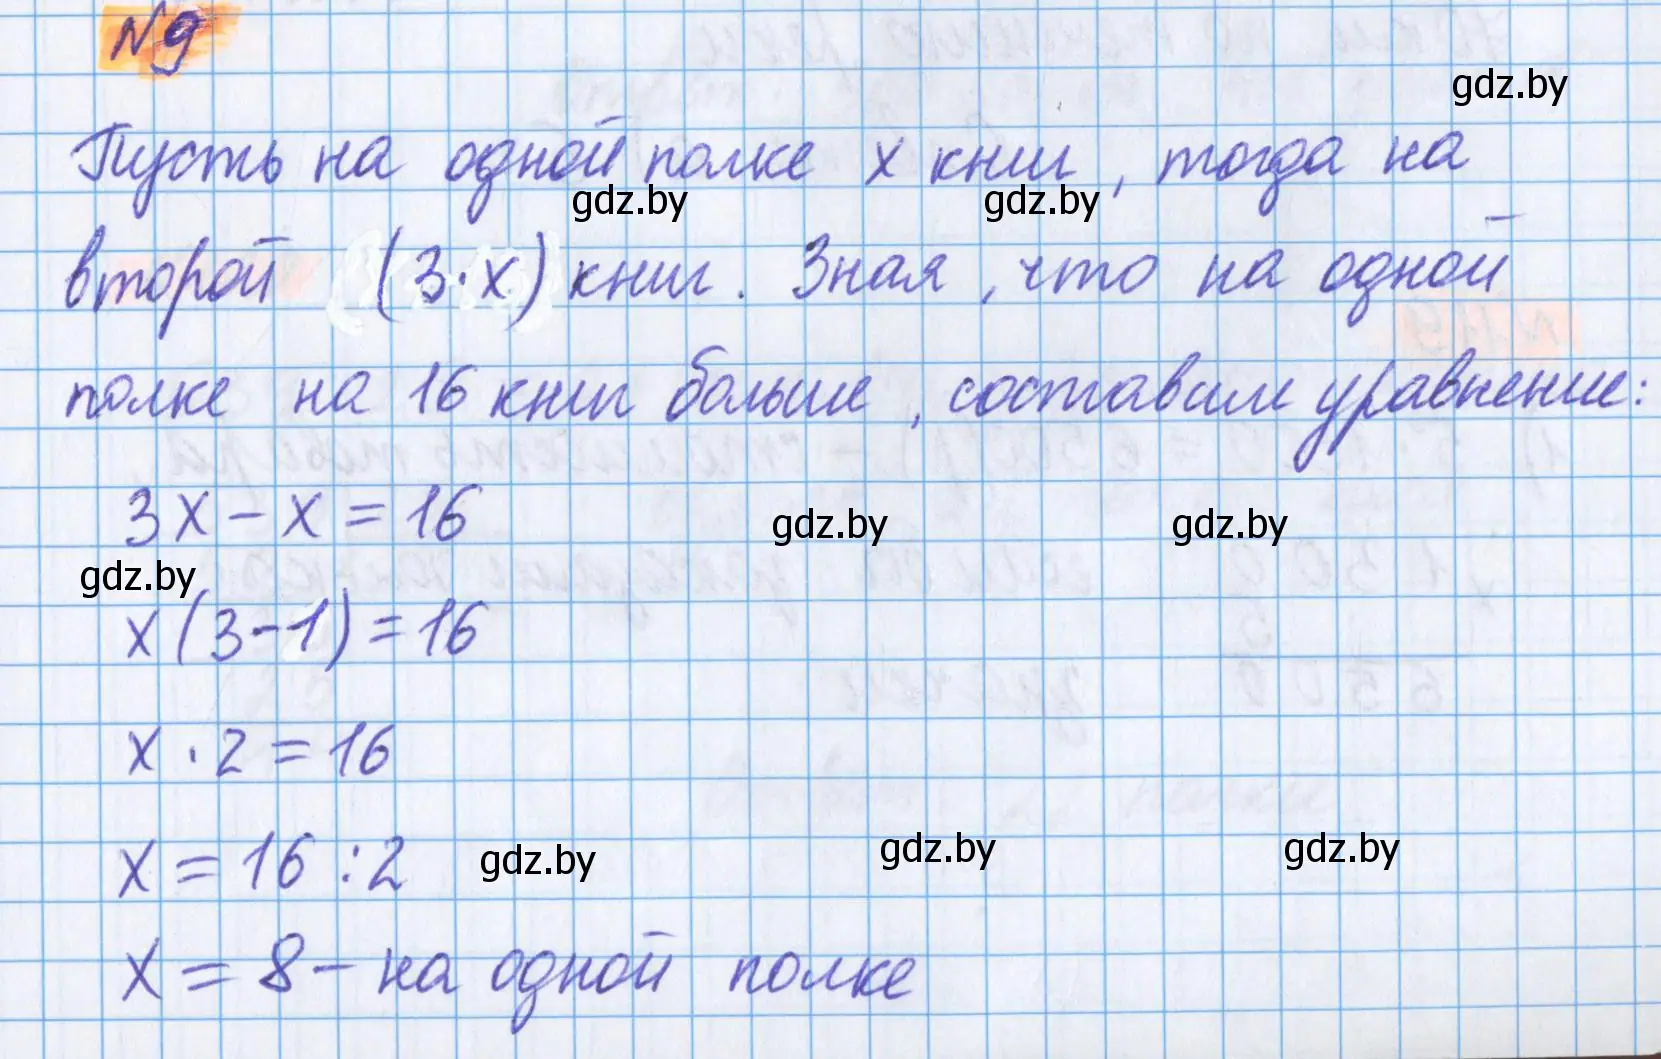 N9
gdz.by
Пусть на одной полке х книг, тогда на
gdz.by gdz.by
второй (3·х) книг. Зная, что на одной
полке на 16 книг больше, составим уравнение:
3х - х = 16
gdz.by gdz.by
gdz.by
х(3-1) = 16
х · 2 = 16
х = 16 : 2
gdz.by gdz.by gdz.by
х = 8 - на одной полке